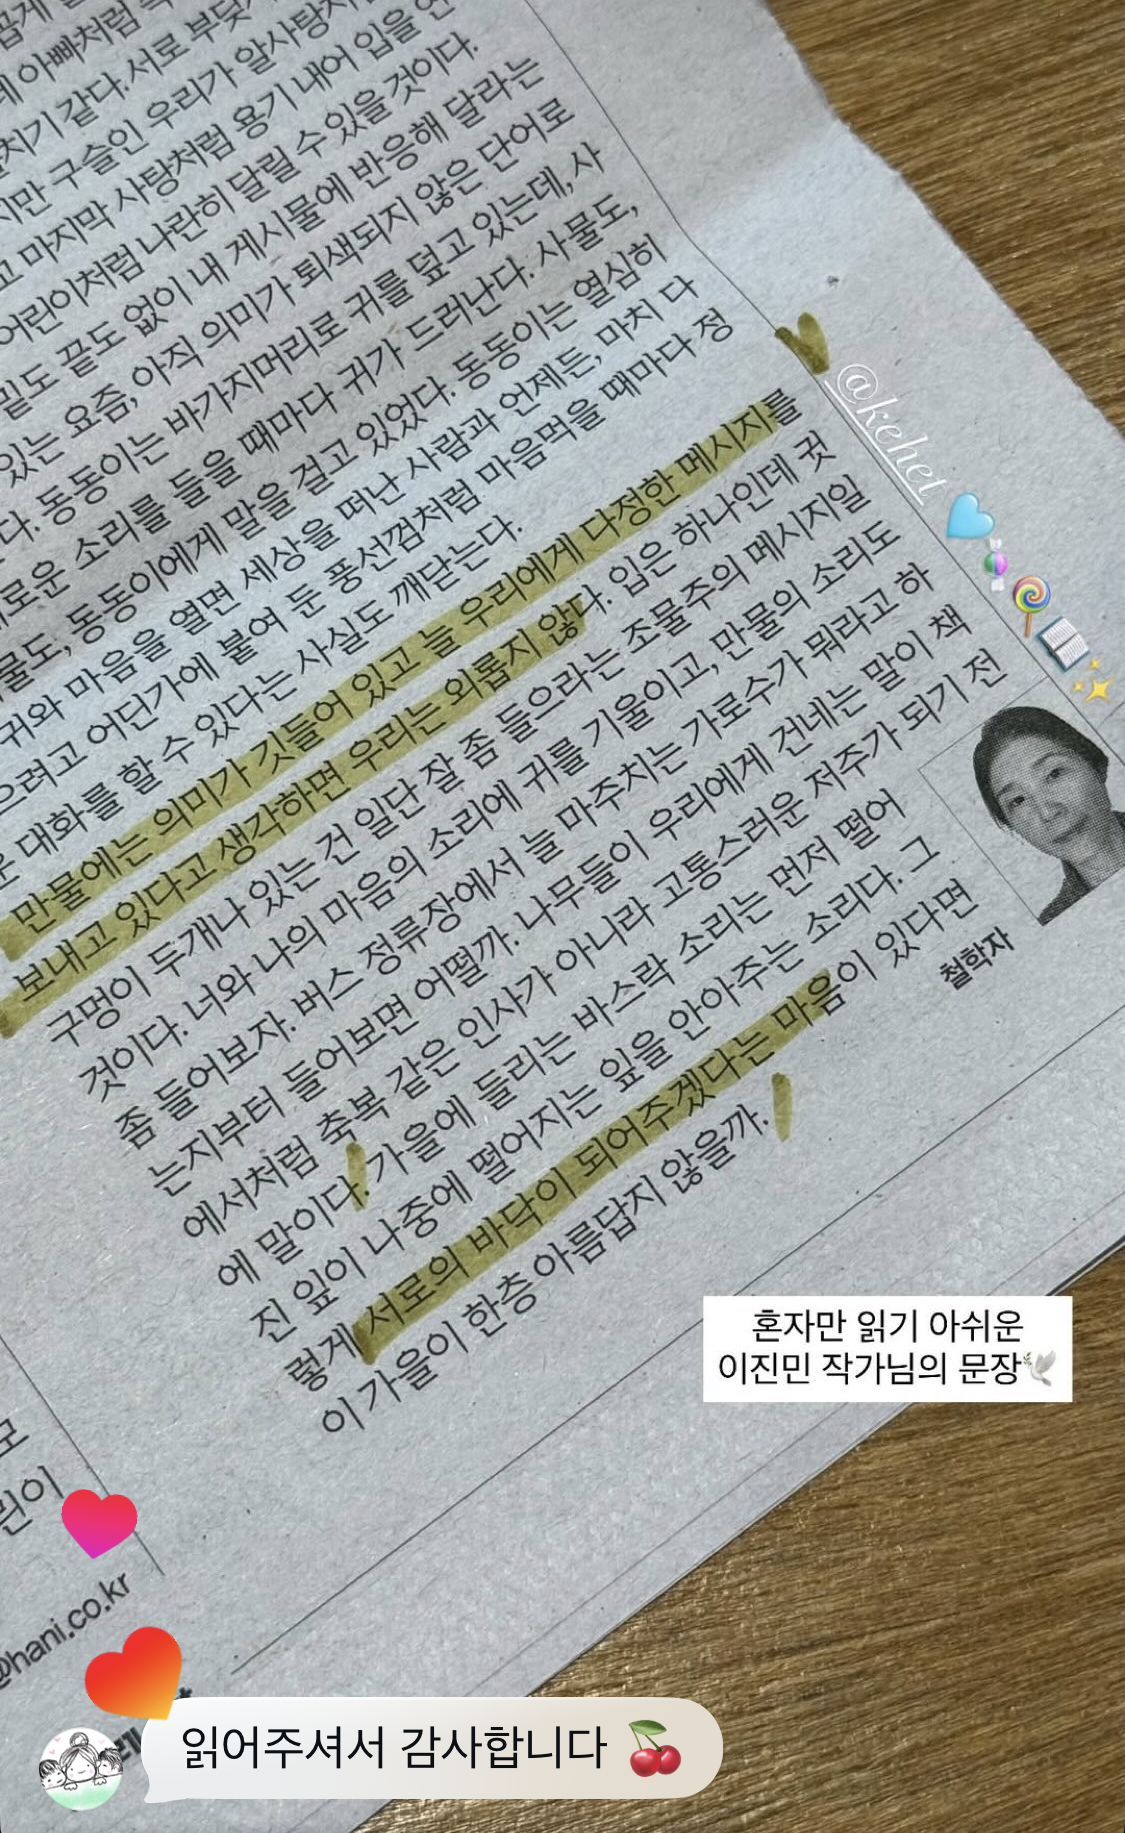 데 아빠처럼
치기 같다. 서로 부딪
지만 구슬인 우리가 알사탕처
고 마지막 사탕처럼 용기 내어 입을 연
어린이처럼 나란히 달릴 수 있을 것이다.
밑도 끝도 없이 내 게시물에 반응해 달라는
있는 요즘, 아직 의미가 퇴색되지 않은 단어로
다. 동동이는 바가지머리로 귀를 덮고 있는데, 사
로운 소리를 들을 때마다 귀가 드러난다. 사물도,
물도, 동동이에게 말을 걸고 있었다. 동동이는 열심히
귀와 마음을 열면 세상을 떠난 사람과 언제든, 마치 다
으려고 어딘가에 붙여 둔 풍선껌처럼 마음먹을 때마다 정
운 대화를 할 수 있다는 사실도 깨닫는다.
만물에는 의미가 깃들어 있고 늘 우리에게 다정한 메시지를
보내고 있다고 생각하면 우리는 외롭지 않다. 입은 하나인데 귓
구멍이 두개나 있는 건 일단 잘 좀 들으라는 조물주의 메시지일
것이다. 너와 나의 마음의 소리에 귀를 기울이고, 만물의 소리도
좀 들어보자. 버스 정류장에서 늘 마주치는 가로수가 뭐라고 하
는지부터 들어보면 어떨까. 나무들이 우리에게 건네는 말이 책
에서처럼 축복 같은 인사가 아니라 고통스러운 저주가 되기 전
에 말이다. 가을에 들리는 바스락 소리는 먼저 떨어
진 잎이 나중에 떨어지는 잎을 안아주는 소리다. 그
렇게 서로의 바닥이 되어주겠다는 마음이 있다면
이 가을이 한층 아름답지 않을까.
철학자
@kehet
혼자만 읽기 아쉬운
이진민 작가님의 문장
린이
@hani.co.kr
읽어주셔서 감사합니다